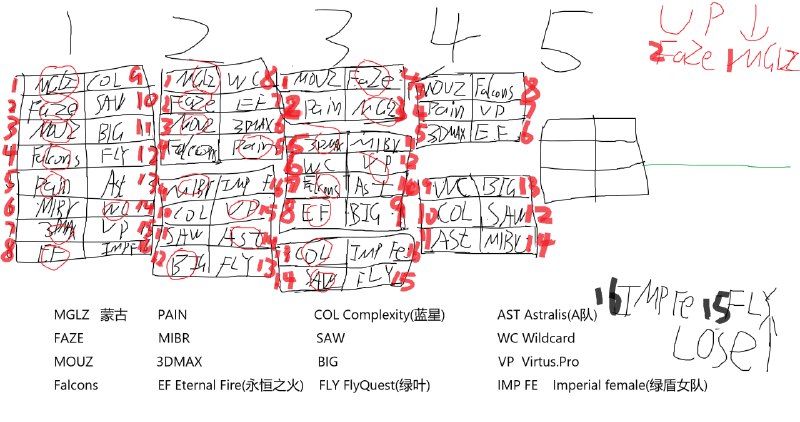 1 2 3 4 5 UP↓
2 FaZe 1 MGLZ
1 MGLZ COL 9
2 FaZe SAW 10
3 MOUZ BIG 11
4 Falcons FLY 12
5 Pain Ast 13
6 MIBR WC 14
7 3DMAX VP 15
8 EF IMP FE 16
1 MGLZ WC 8
2 FaZe EF 7
3 MOUZ 3DMAX 6
4 Falcons Pain 5
9 MIBR IMP FE 16
10 COL VP 15
11 SAW Ast 14
12 BIG FLY 13
1 MOUZ FaZe 4
2 Pain MGLZ 3
5 3DMAX MIBR
6 WC VP 12
7 Falcons Ast 10
8 EF BIG 9
COL IMP Fe 16
14 SAW FLY 15
MOUZ Falcons 8
4 Pain VP 7
5 3DMAX EF 6
9 WC BIG 13
10 COL SAW 12
11 ASt MIBR 14
16 IMP Fe 15 FLY
LOSE↑
MGLZ 蒙古 PAIN COL Complexity(蓝星) AST Astralis(A队)
FAZE MIBR SAW WC Wildcard
MOUZ 3DMAX BIG VP Virtus.Pro
Falcons EF Eternal Fire(永恒之火) FLY FlyQuest(绿叶) IMP FE Imperial female(绿盾女队)